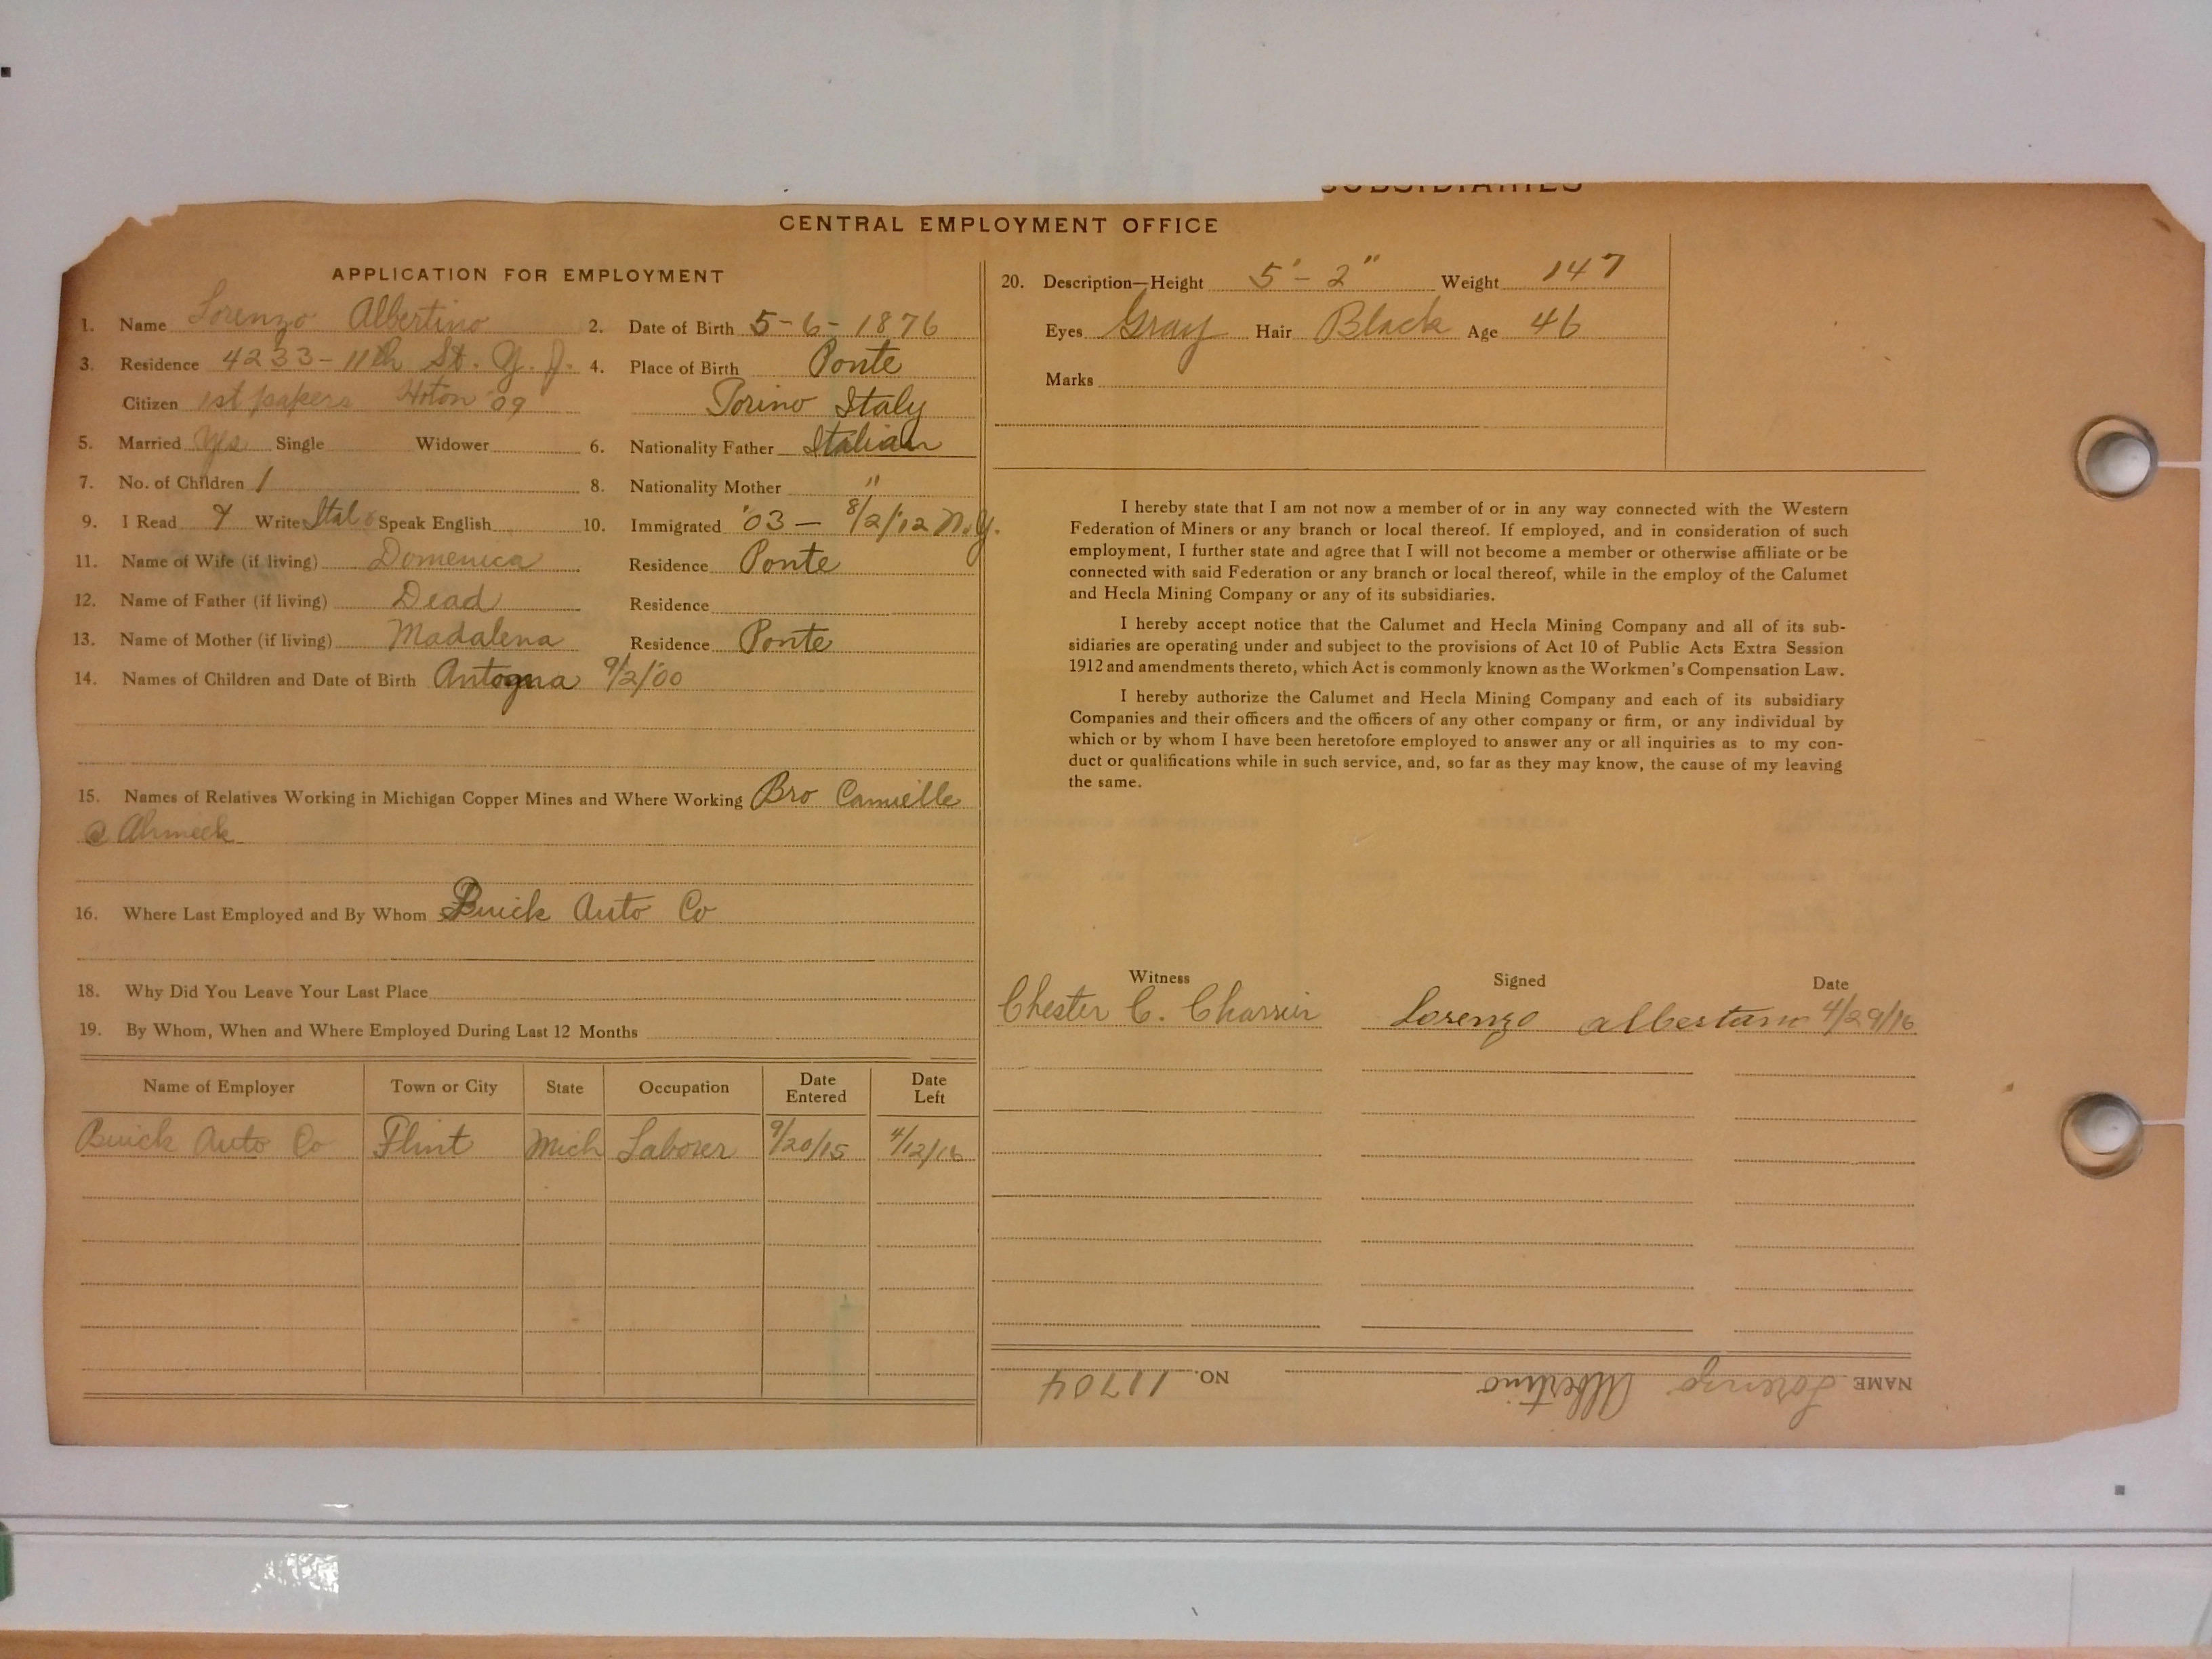 SUBSIDIARIES
CENTRAL EMPLOYMENT OFFICE
APPLICATION FOR EMPLOYMENT
1. Name Lorenzo Albertino 2. Date of Birth 5-6-1876
3. Residence 4233-11th St. Y. J. 4. Place of Birth Ponte
Citizen 1st papers Hoton '09 Torino Italy
5. Married Yes Single Widower 6. Nationality Father Italian
7. No. of Children 1 8. Nationality Mother "
9. I Read Y Write Ital Speak English 10. Immigrated '03 — 8/2/'12 N.Y.
11. Name of Wife (if living) Domenica Residence Ponte
12. Name of Father (if living) Dead Residence
13. Name of Mother (if living) Madalena Residence Ponte
14. Names of Children and Date of Birth Antogna 9/2/'00
15. Names of Relatives Working in Michigan Copper Mines and Where Working Bro Camielle
@ Ahmeek
16. Where Last Employed and By Whom Buick Auto Co
18. Why Did You Leave Your Last Place
19. By Whom, When and Where Employed During Last 12 Months
Name of Employer Town or City State Occupation Date Entered Date Left
Buick Auto Co Flint Mich Laborer 9/20/15 4/12/16
20. Description—Height 5'-2" Weight 147
Eyes Gray Hair Black Age 46
Marks
I hereby state that I am not now a member of or in any way connected with the Western
Federation of Miners or any branch or local thereof. If employed, and in consideration of such
employment, I further state and agree that I will not become a member or otherwise affiliate or be
connected with said Federation or any branch or local thereof, while in the employ of the Calumet
and Hecla Mining Company or any of its subsidiaries.
I hereby accept notice that the Calumet and Hecla Mining Company and all of its sub-
sidiaries are operating under and subject to the provisions of Act 10 of Public Acts Extra Session
1912 and amendments thereto, which Act is commonly known as the Workmen's Compensation Law.
I hereby authorize the Calumet and Hecla Mining Company and each of its subsidiary
Companies and their officers and the officers of any other company or firm, or any individual by
which or by whom I have been heretofore employed to answer any or all inquiries as to my con-
duct or qualifications while in such service, and, so far as they may know, the cause of my leaving
the same.
Witness Signed Date
Chester C. Lorenzo Albertino 4/29/16
NAME Lorenzo Albertino NO. 11704